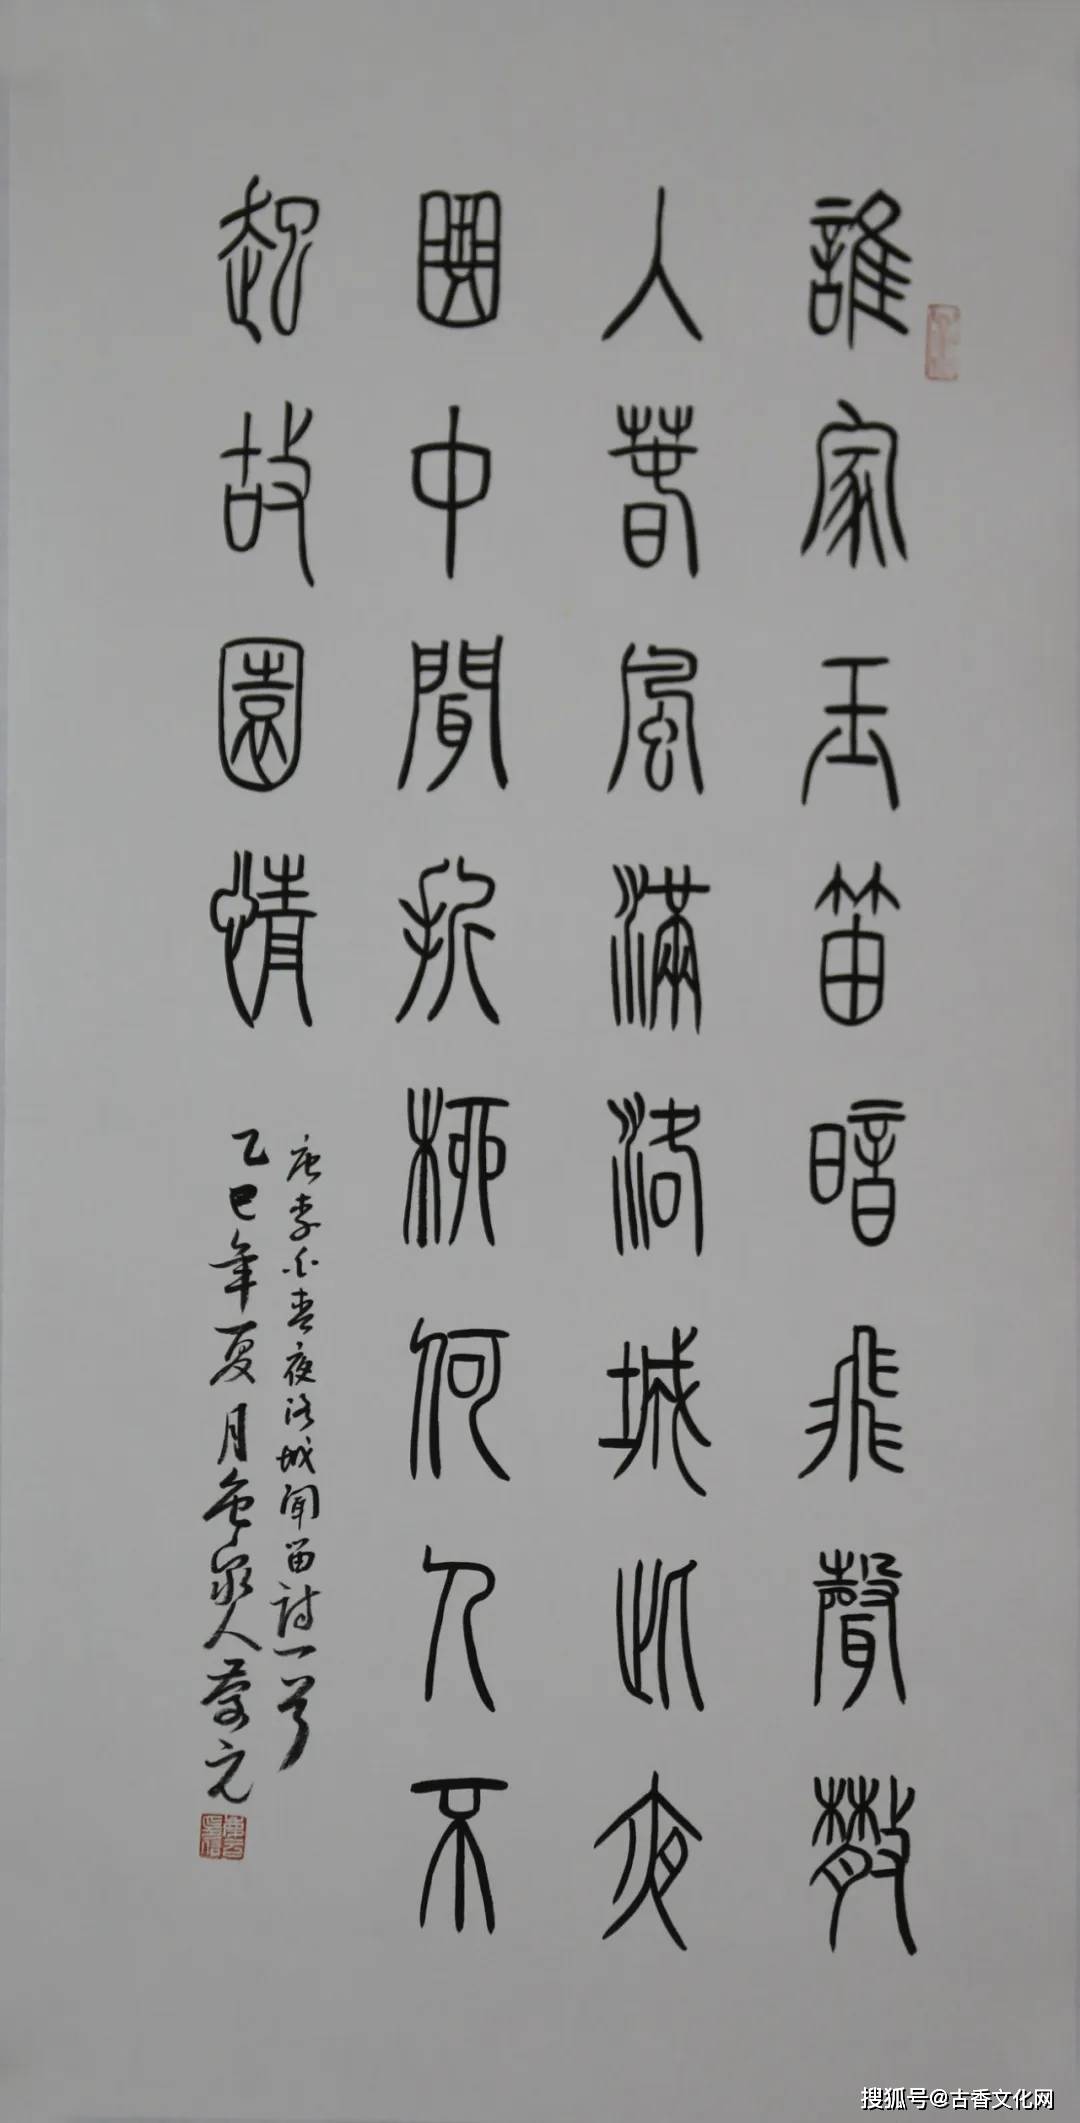 誰家玉笛暗飛聲散
入春風滿洛城此夜
曲中聞折柳何人不
起故園情
唐李白春夜洛城闻笛詩一首
乙巳年夏月泉人元
搜狐号@古香文化网